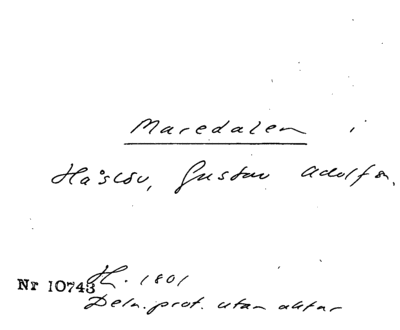 Maredalen i
Håslöv, Gustav Adolf sn.
Nr 10743 Hl. 1801
Deln.prot. utan aktnr